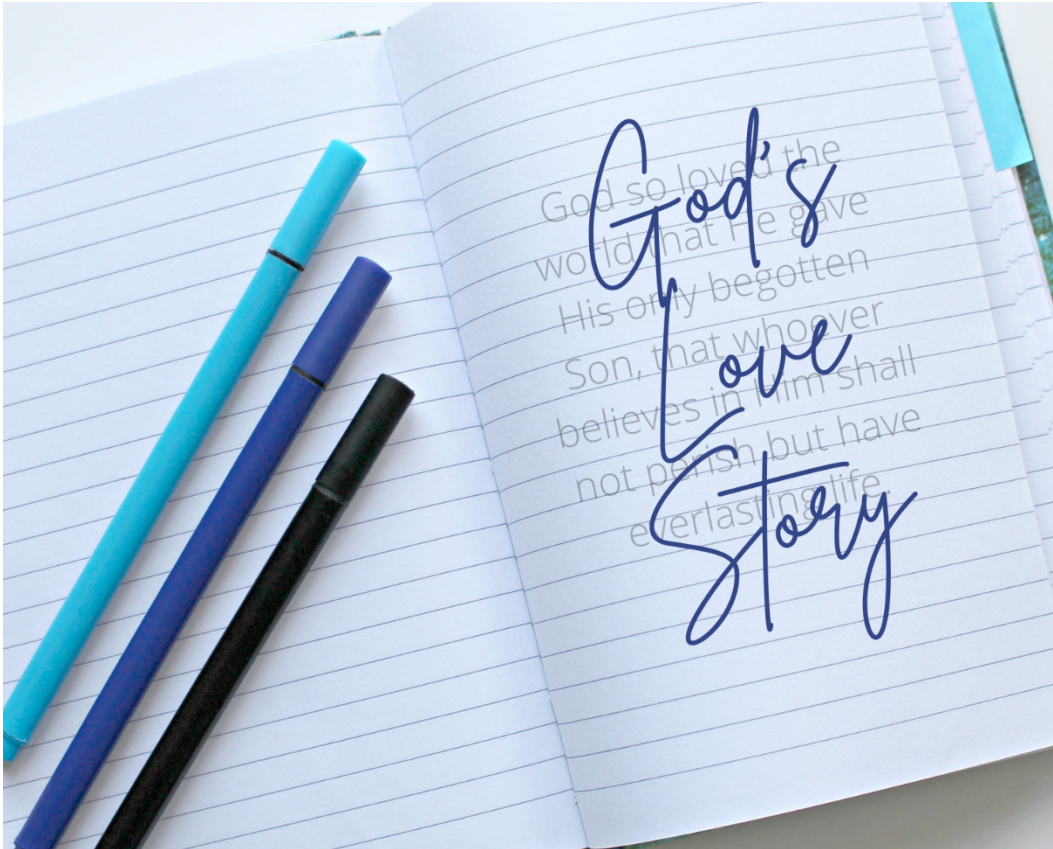 God's
Love
Story
God so loved the
world that He gave
His only begotten
Son, that whoever
believes in Him shall
not perish but have
everlasting life